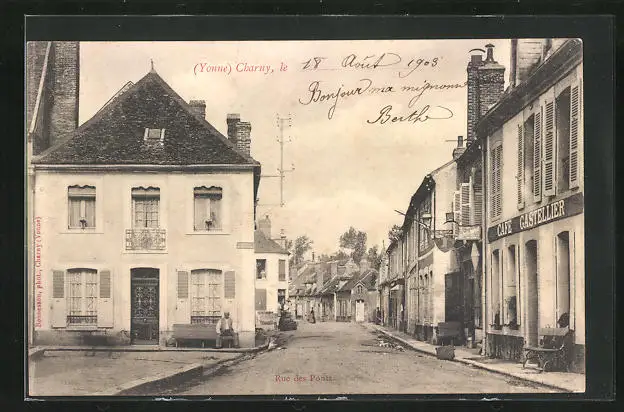 (Yonne) Charny, le 18 Août 1903
Bonjour ma mignonne
Berthe
CAFÉ GASTELLIER
Bonnesson, phot., Charny (Yonne)
Rue des Ponts